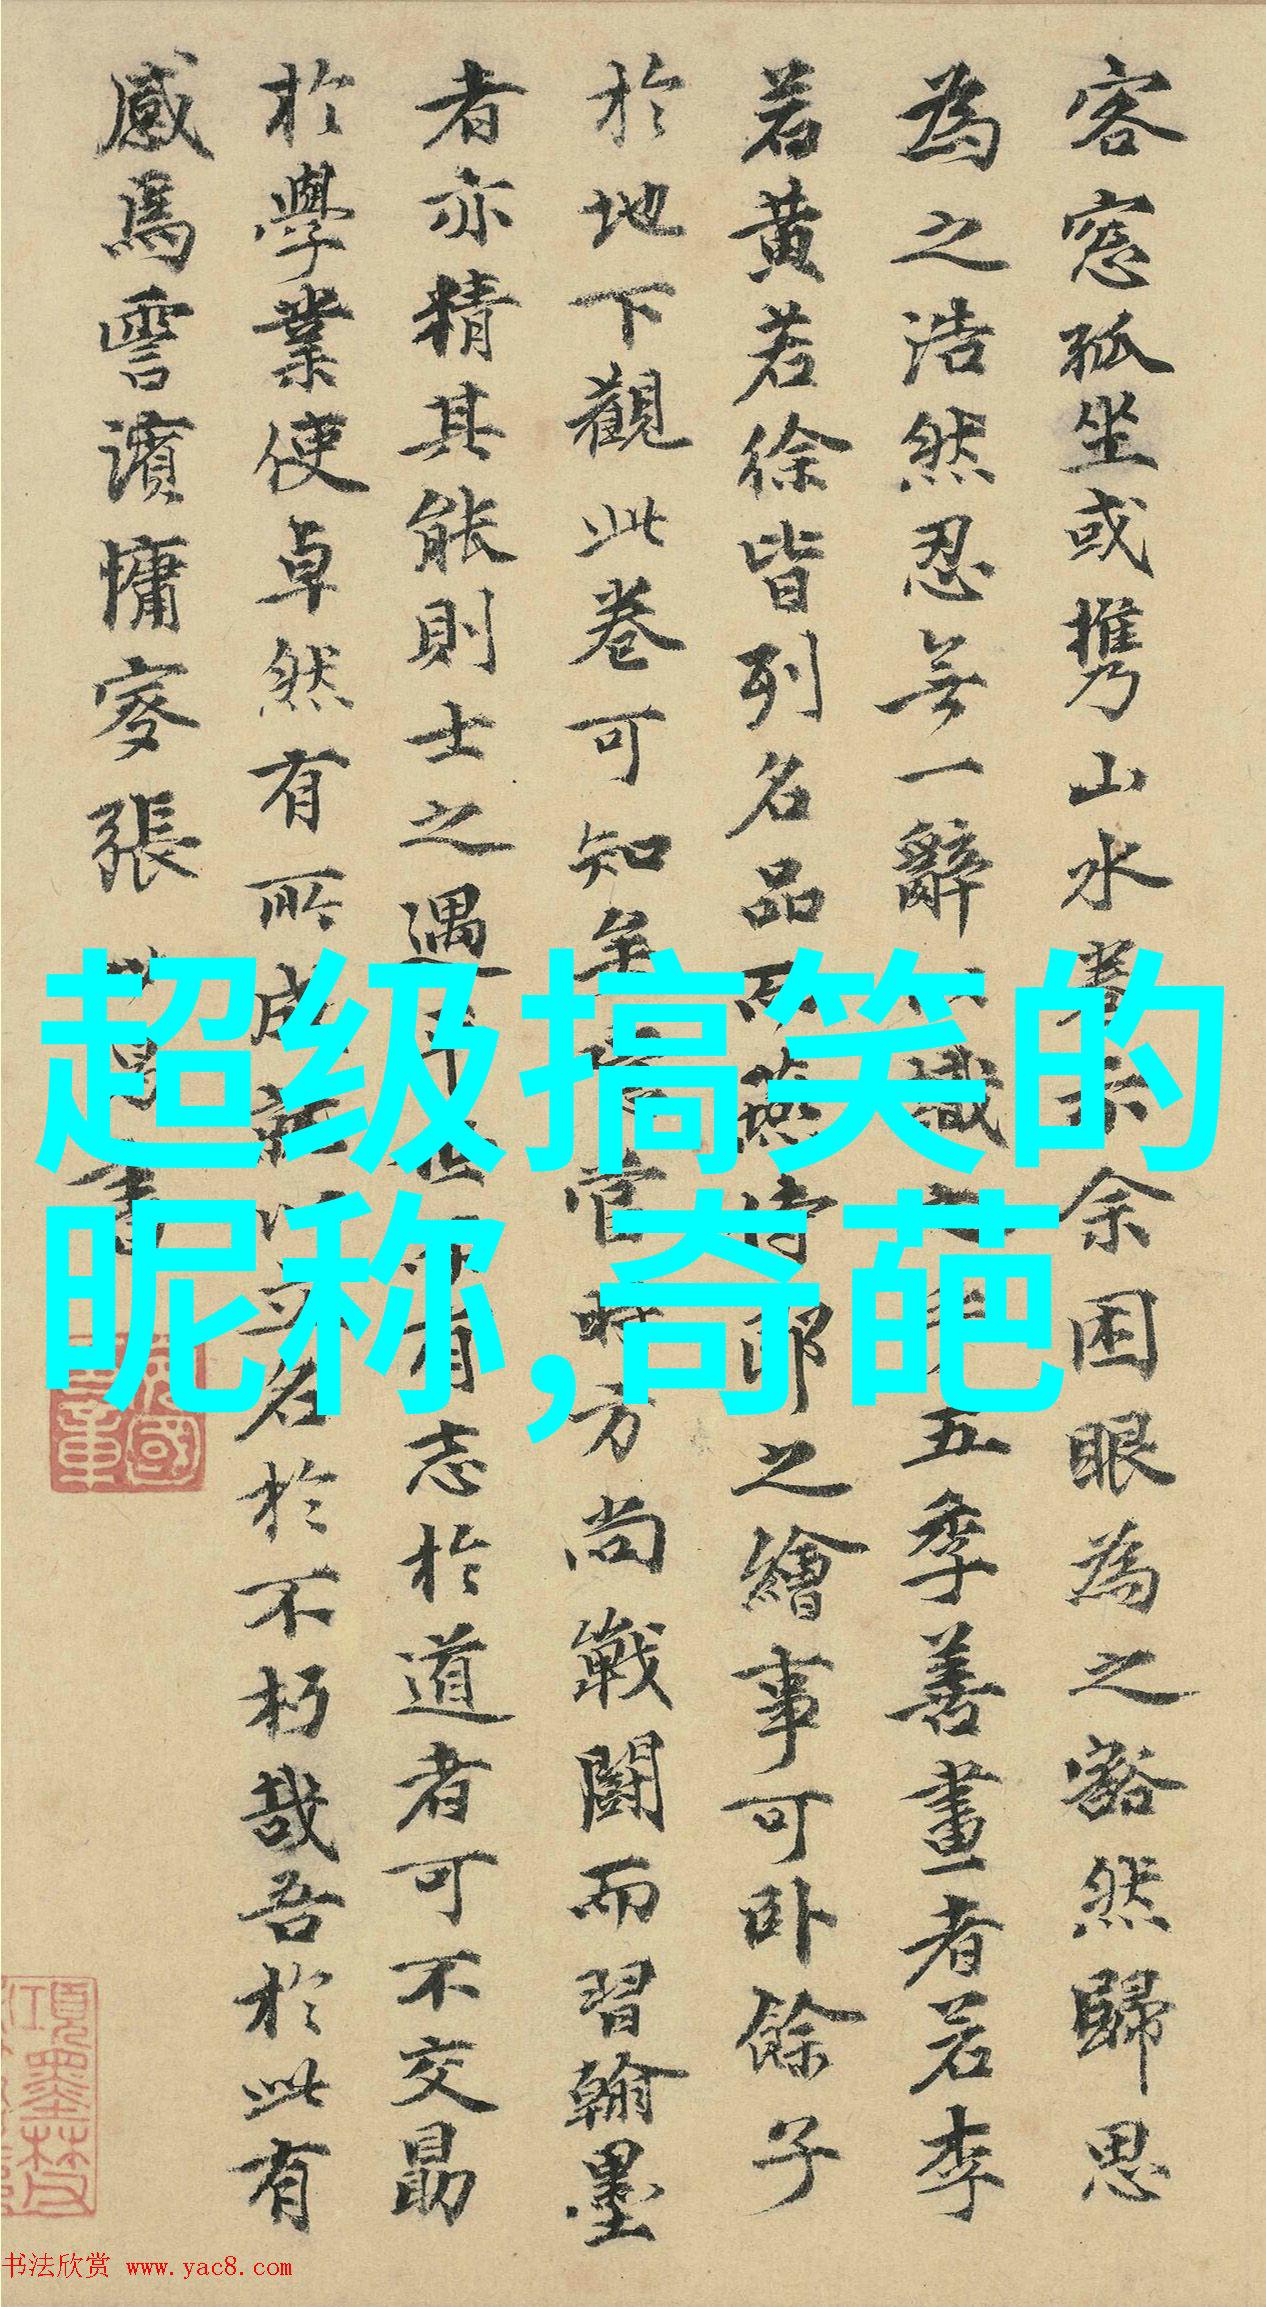 客窓孤坐或携山水
余困眼為之豁然歸思
為之浩然忍無一辭
五季善畫者若李
若黄若徐皆列名品
之繪事可卧餘子
於地下觀此卷可知
方尚戰鬪而習翰墨
者亦精其能則士之遇
有志於道者可不交勗
於學業使卓然有所
名於不朽哉吾於此有
感焉
張
超级搞笑的
昵称,奇葩
书法欣赏 www.yac8.com